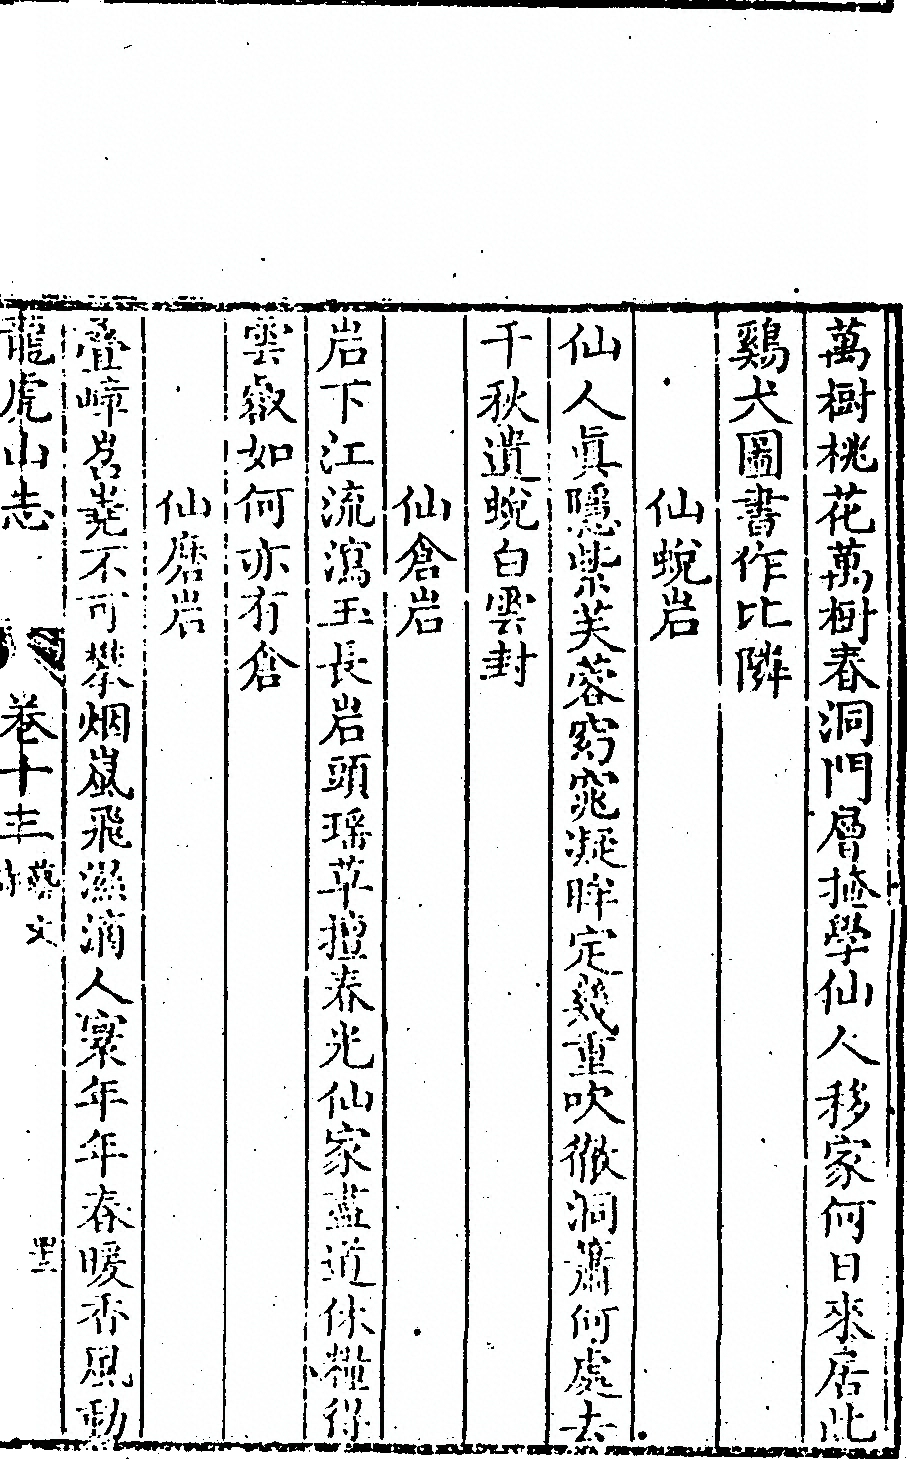 萬樹桃花萬樹春洞門層掩學仙人移家何日來居此
鷄犬圖書作比隣
仙蛻岩
仙人眞隱紫芙蓉窈窕凝眸定幾重吹徹洞簫何處去
千秋遺蛻白雲封
仙倉岩
岩下江流瀉玉長岩頭瑶草擅春光仙家盡道休糧得
雲嶽如何亦有倉
仙磨岩
疊嶂岧嶤不可攀烟嵐飛濕滴人寰年年春暖香風動
龍虎山志
卷十三
藝文